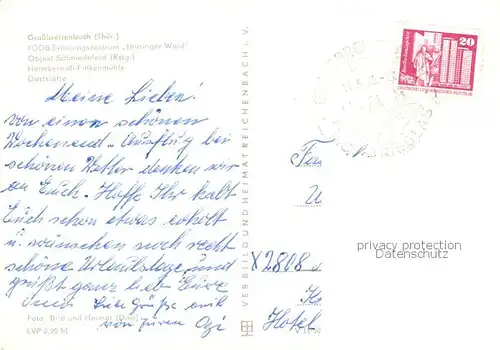 Großbreitenbach (Thür.)
FDGB-Erholungszentrum „Thüringer Wald"
Objekt Schmiedefeld (Rstg.)
Herrnbereich Finkenmühle
Gaststätte
Meine Lieben!
von einem schönen
Wochenend-Ausflug bei
schönem Wetter denken wir
an Euch. Hoffe Ihr habt
Euch schon etwas erholt
u. wünschen noch recht
schöne Urlaubstage und
grüßt ganz lieb Eure
Liebe Grüße auch
von Eurem Opi
Foto: Bild und Heimat
EVP 0,20 M
VEB BILD UND HEIMAT REICHENBACH i. V.
20
X2808
Hotel
privacy protection
Datenschutz